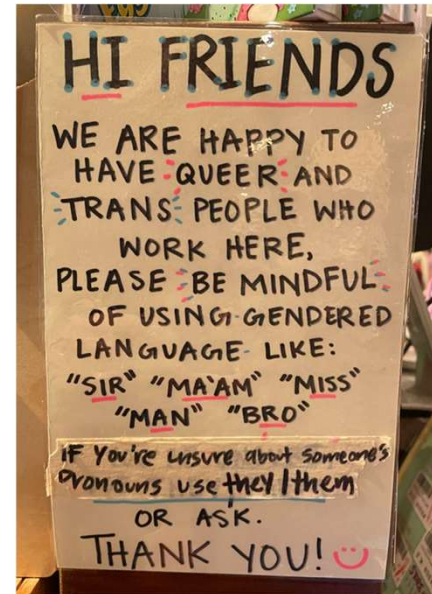 HI FRIENDS
WE ARE HAPPY TO
HAVE QUEER AND
TRANS PEOPLE WHO
WORK HERE,
PLEASE BE MINDFUL
OF USING GENDERED
LANGUAGE LIKE:
"SIR" "MA'AM" "MISS"
"MAN" "BRO"
iF You're unsure about someone's
Pronouns use they/them
OR ASK.
THANK YOU!